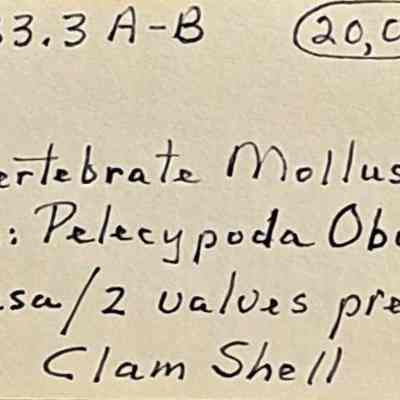 33.3 A-B (20,0
ertebrate Mollus
: Pelecypoda Obo
sa/2 values pre
Clam Shell